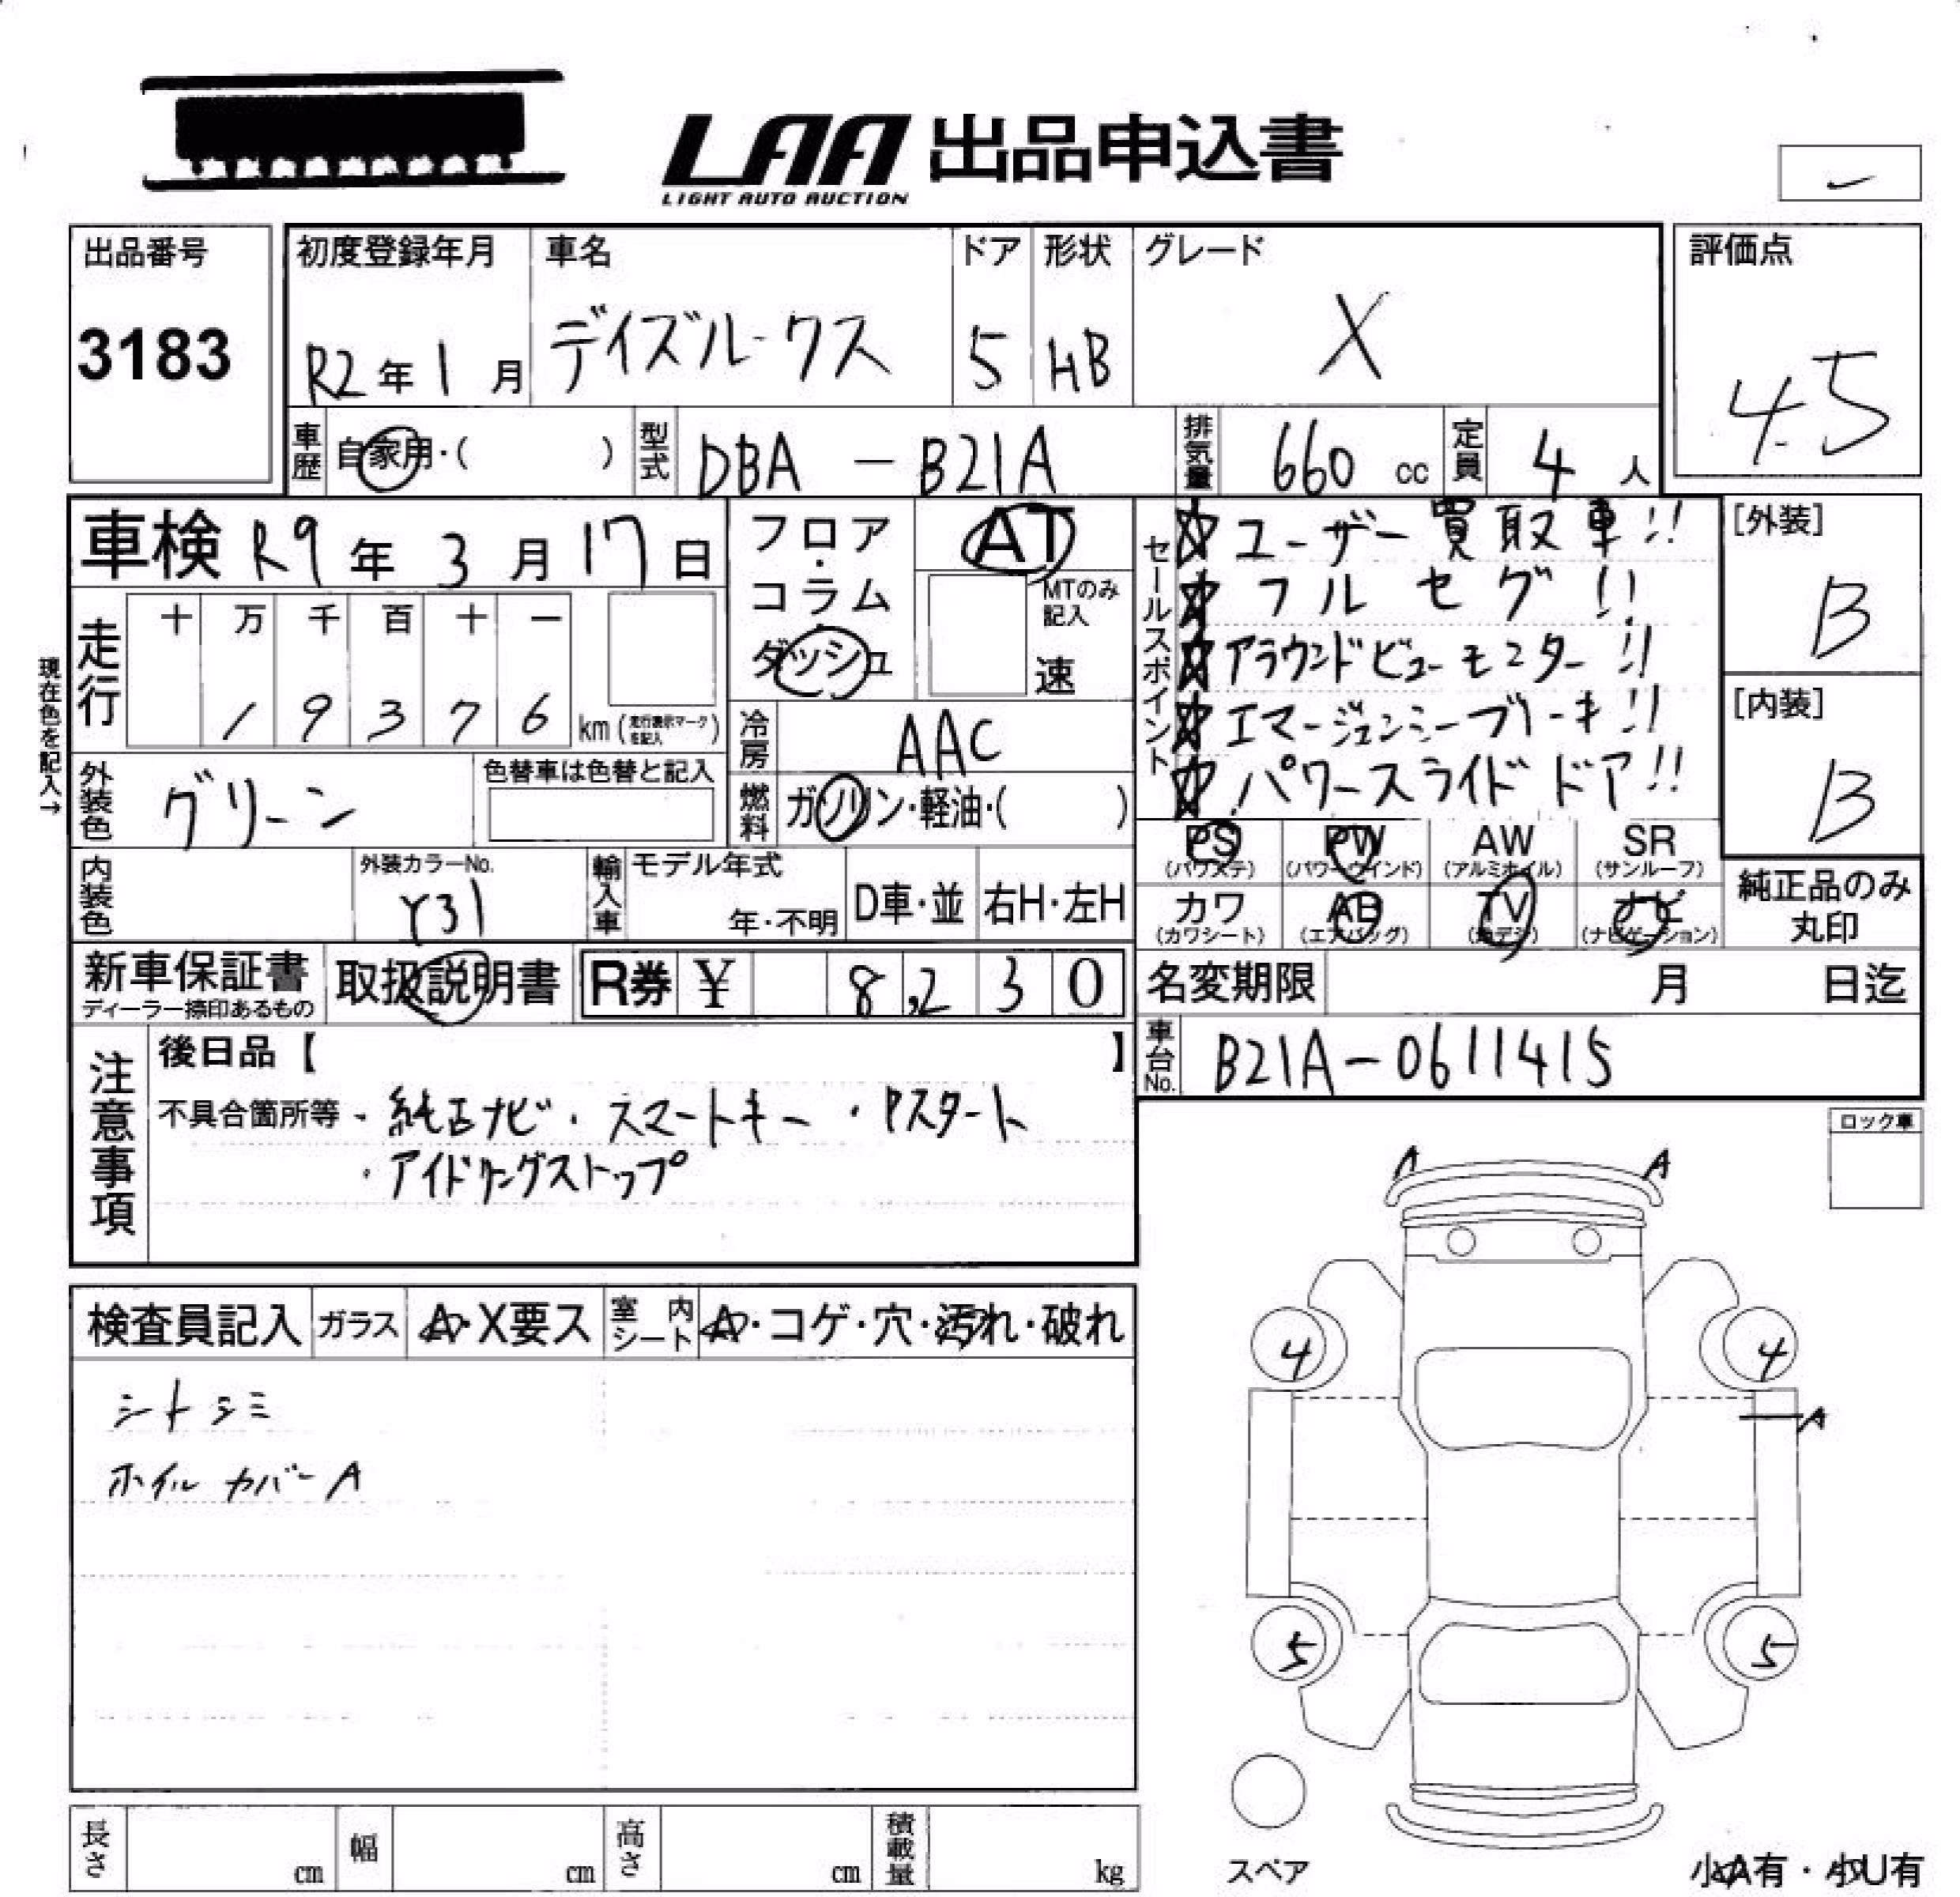 LAA 出品申込書
LIGHT AUTO AUCTION
出品番号
3183
初度登録年月
R2年1月
車名
デイズルークス
ドア
5
形状
HB
グレード
X
評価点
4.5
車歴
自家用・( )
型式
DBA - B21A
排気量
660 cc
定員
4 人
車検 R9年3月17日
フロア・コラム・ダッシュ
AT
MTのみ記入
速
セールスポイント
☆ユーザー買取車!!
☆フルセグ!!
☆アラウンドビューモニター!!
☆エマージェンシーブレーキ!!
☆パワースライドドア!!
[外装]
B
[内装]
B
現在色を記入→
走行
十 万 千 百 十 一
1 9 3 7 6 km (走行表示マークを記入)
冷房
AAC
外装色
グリーン
色替車は色替と記入
燃料
ガソリン・軽油・( )
PS (パワステ) PW (パワーウインド) AW (アルミホイル) SR (サンルーフ)
カワ (カワシート) AB (エアバッグ) TV (地デジ) ナビ (ナビゲーション)
純正品のみ丸印
内装色
外装カラーNo.
Y31
輸入車
モデル年式
年・不明
D車・並
右H・左H
新車保証書
ディーラー捺印あるもの
取扱説明書
R券 ¥ 8,230
名変期限 月 日迄
車台No.
B21A-0611415
注意事項
後日品【 】
不具合箇所等 ・純正ナビ・スマートキー ・Pスタート
・アイドリングストップ
ロック車
検査員記入 ガラス A・X要ス 室内シート A・コゲ・穴・汚れ・破れ
シートシミ
ホイルカバーA
A A
4 4
A
5 5
スペア
小A有・小U有
長さ cm 幅 cm 高さ cm 積載量 kg